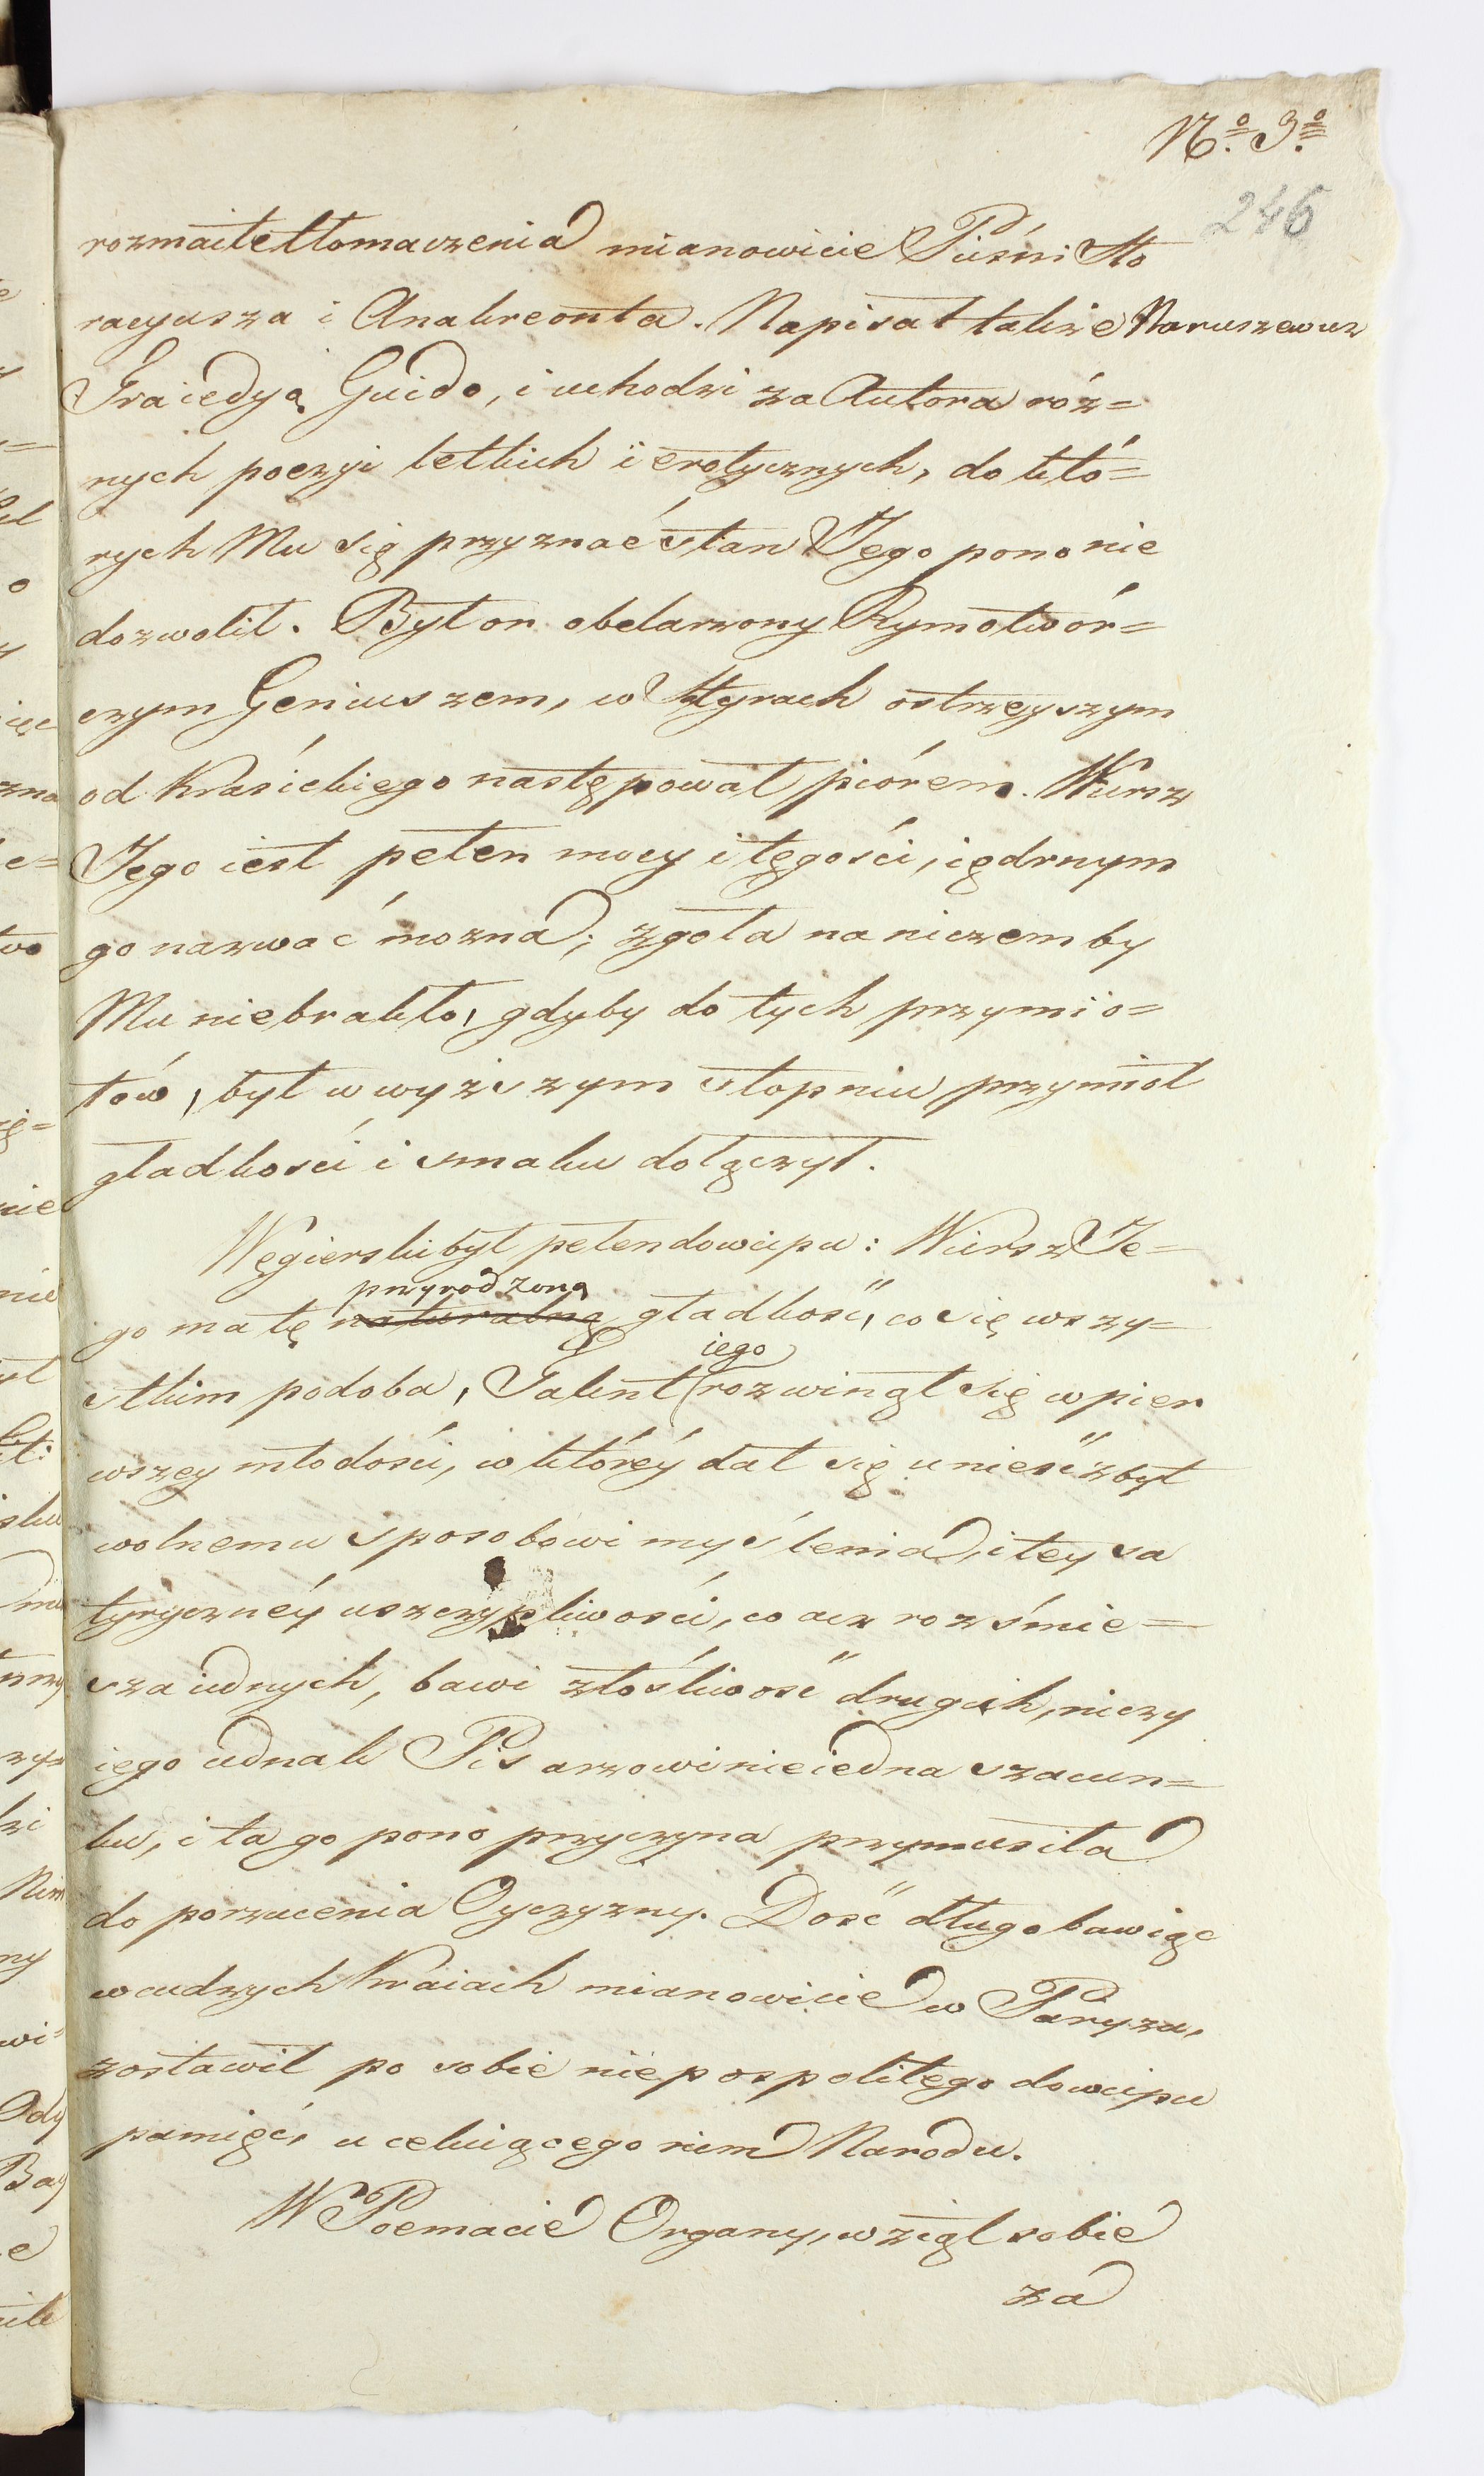 No. 3o.
246
rozmaite tłomaczenia mianowicie Pieśni Ho
racyusza i Anakreonta. Napisał także Naruszewicz
Traiedyą Guido, i uchodzi za Autora róż=
nych poezyi letkich i erotycznych, do któ=
rych Mu się przyznać stan Jego pono nie
dozwolił. Był on obdarzony Rymotwór=
czym Geniuszem, w Styrach ostrzeyszym
od Krasickiego następował piórem. Wiersz
Jego iest pełen mocy i tęgości, iędrnym
go nazwać można; zgoła na niczem by
Mu niebrakło, gdyby do tych przymio=
tów, był w wyższym stopniu przymiot
gładkości i smaku dołączył.
Węgierski był pełen dowcipu: Wiersz Je=
przyrodzoną
go ma tę naturalną gładkość, co się wszy=
iego
stkim podoba, Talent rozwinął się w pier
wszey młodości, w któréy dał się unieść zbyt
wolnemu sposobowi myślenia, i tey sa
tyrycznéy uszczypliwości, co acz rozśmie=
sza iednych, bawi złośliwość drugich, niczy
iego iednak Pisarzowi nieiedna szacun=
ku, i ta go pono przyczyna przymusiła
do porzucenia Oyczyzny. Dość długo bawiąc
w cudzych Kraiach mianowicie w Paryżu,
zostawił po sobie niepospolitego dowcipu
pamięć, u celuiącego niem Narodu.
W Poemacie Organy, wziął sobie
za